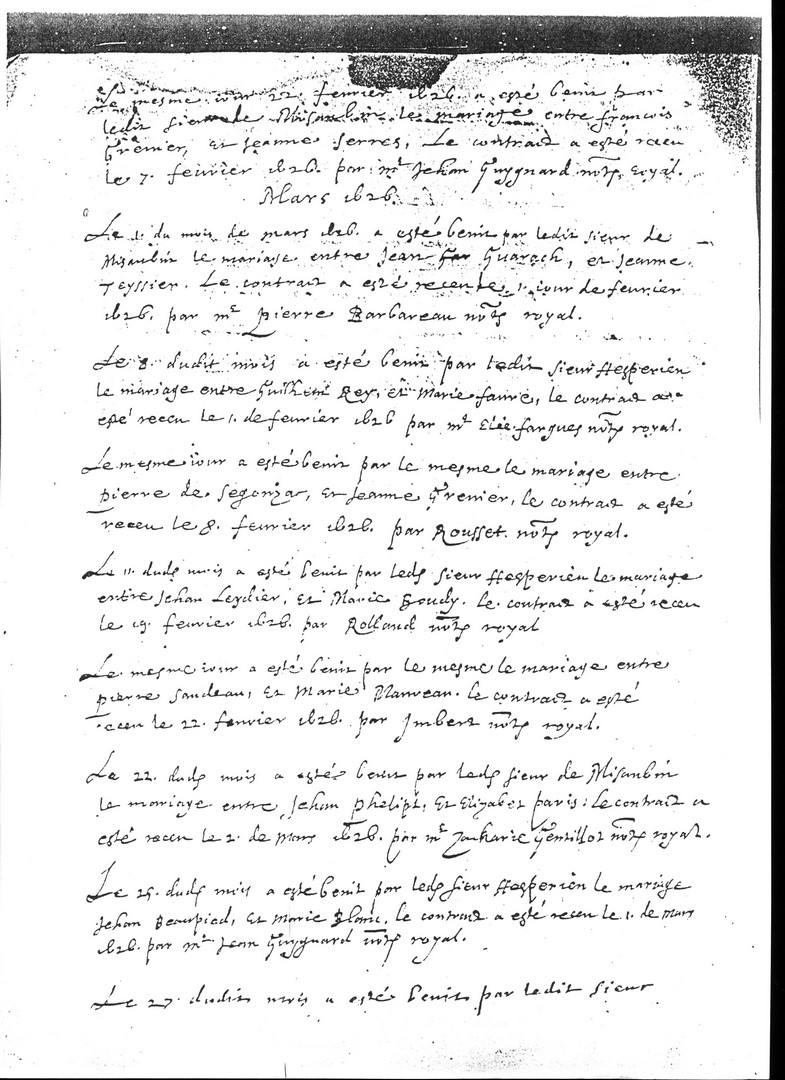 Le mesme iour 22. fevrier 1626. a esté benit par
ledit sieur de Misaubin le mariage entre francois
Grenier, et Jeanne Serres, Le contract a esté receu
le 7. fevrier 1626. par mᵉ Jehan Guygnard noʳᵉ royal.
Mars 1626.
Le 1. du mois de mars 1626. a esté benit par ledit sieur de
Misaubin le mariage entre Jean Guarach, et Jeanne
Teyssier. Le contract a esté receu le 1. iour de fevrier
1626. par mᵉ Pierre Barbareau noʳᵉ royal.
Le 8. dudit mois a esté benit par ledit sieur Hesperien
le mariage entre Guilhem Rey, et Marie faure, le contract a
esté receu le 1. de fevrier 1626 par mᵉ Elie fargues noʳᵉ royal.
Le mesme iour a esté benit par le mesme le mariage entre
pierre de Segonzac, et Jeanne Grenier, le contract a esté
receu le 8. fevrier 1626. par Rousset noʳᵉ royal.
Le 11. dudᵗ mois a esté benit par ledᵗ sieur Hesperien le mariage
entre Jehan Leydier, et Marie Boudy. le contract a esté receu
le 19. fevrier 1626. par Rolland noʳᵉ royal
Le mesme iour a esté benit par le mesme le mariage entre
pierre Saudeau, et Marie Planteau. le contract a esté
receu le 22. fevrier 1626. par Imbert noʳᵉ royal.
Le 22. dudᵗ mois a esté benit par ledᵗ sieur de Misaubin
le mariage entre Jehan phelipt, et Elizabet paris: le contract a
esté receu le 2. de mars 1626. par mᵉ Zacharie Gentillot noʳᵉ royal.
Le 25. dudᵗ mois a esté benit par ledᵗ sieur Hesperien le mariage
Jehan Beaupied, et Marie Blanc. le contract a esté receu le 1. de mars
1626. par mᵉ Jean Guygnard noʳᵉ royal.
Le 27. dudit mois a esté benit par ledit sieur